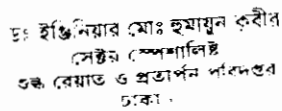 ডঃ ইঞ্জিনিয়ার মোঃ হুমায়ুন কবীর
সেক্টর স্পেশালিষ্ট
শুল্ক রেয়াত ও প্রত্যর্পন পরিদপ্তর
ঢাকা।